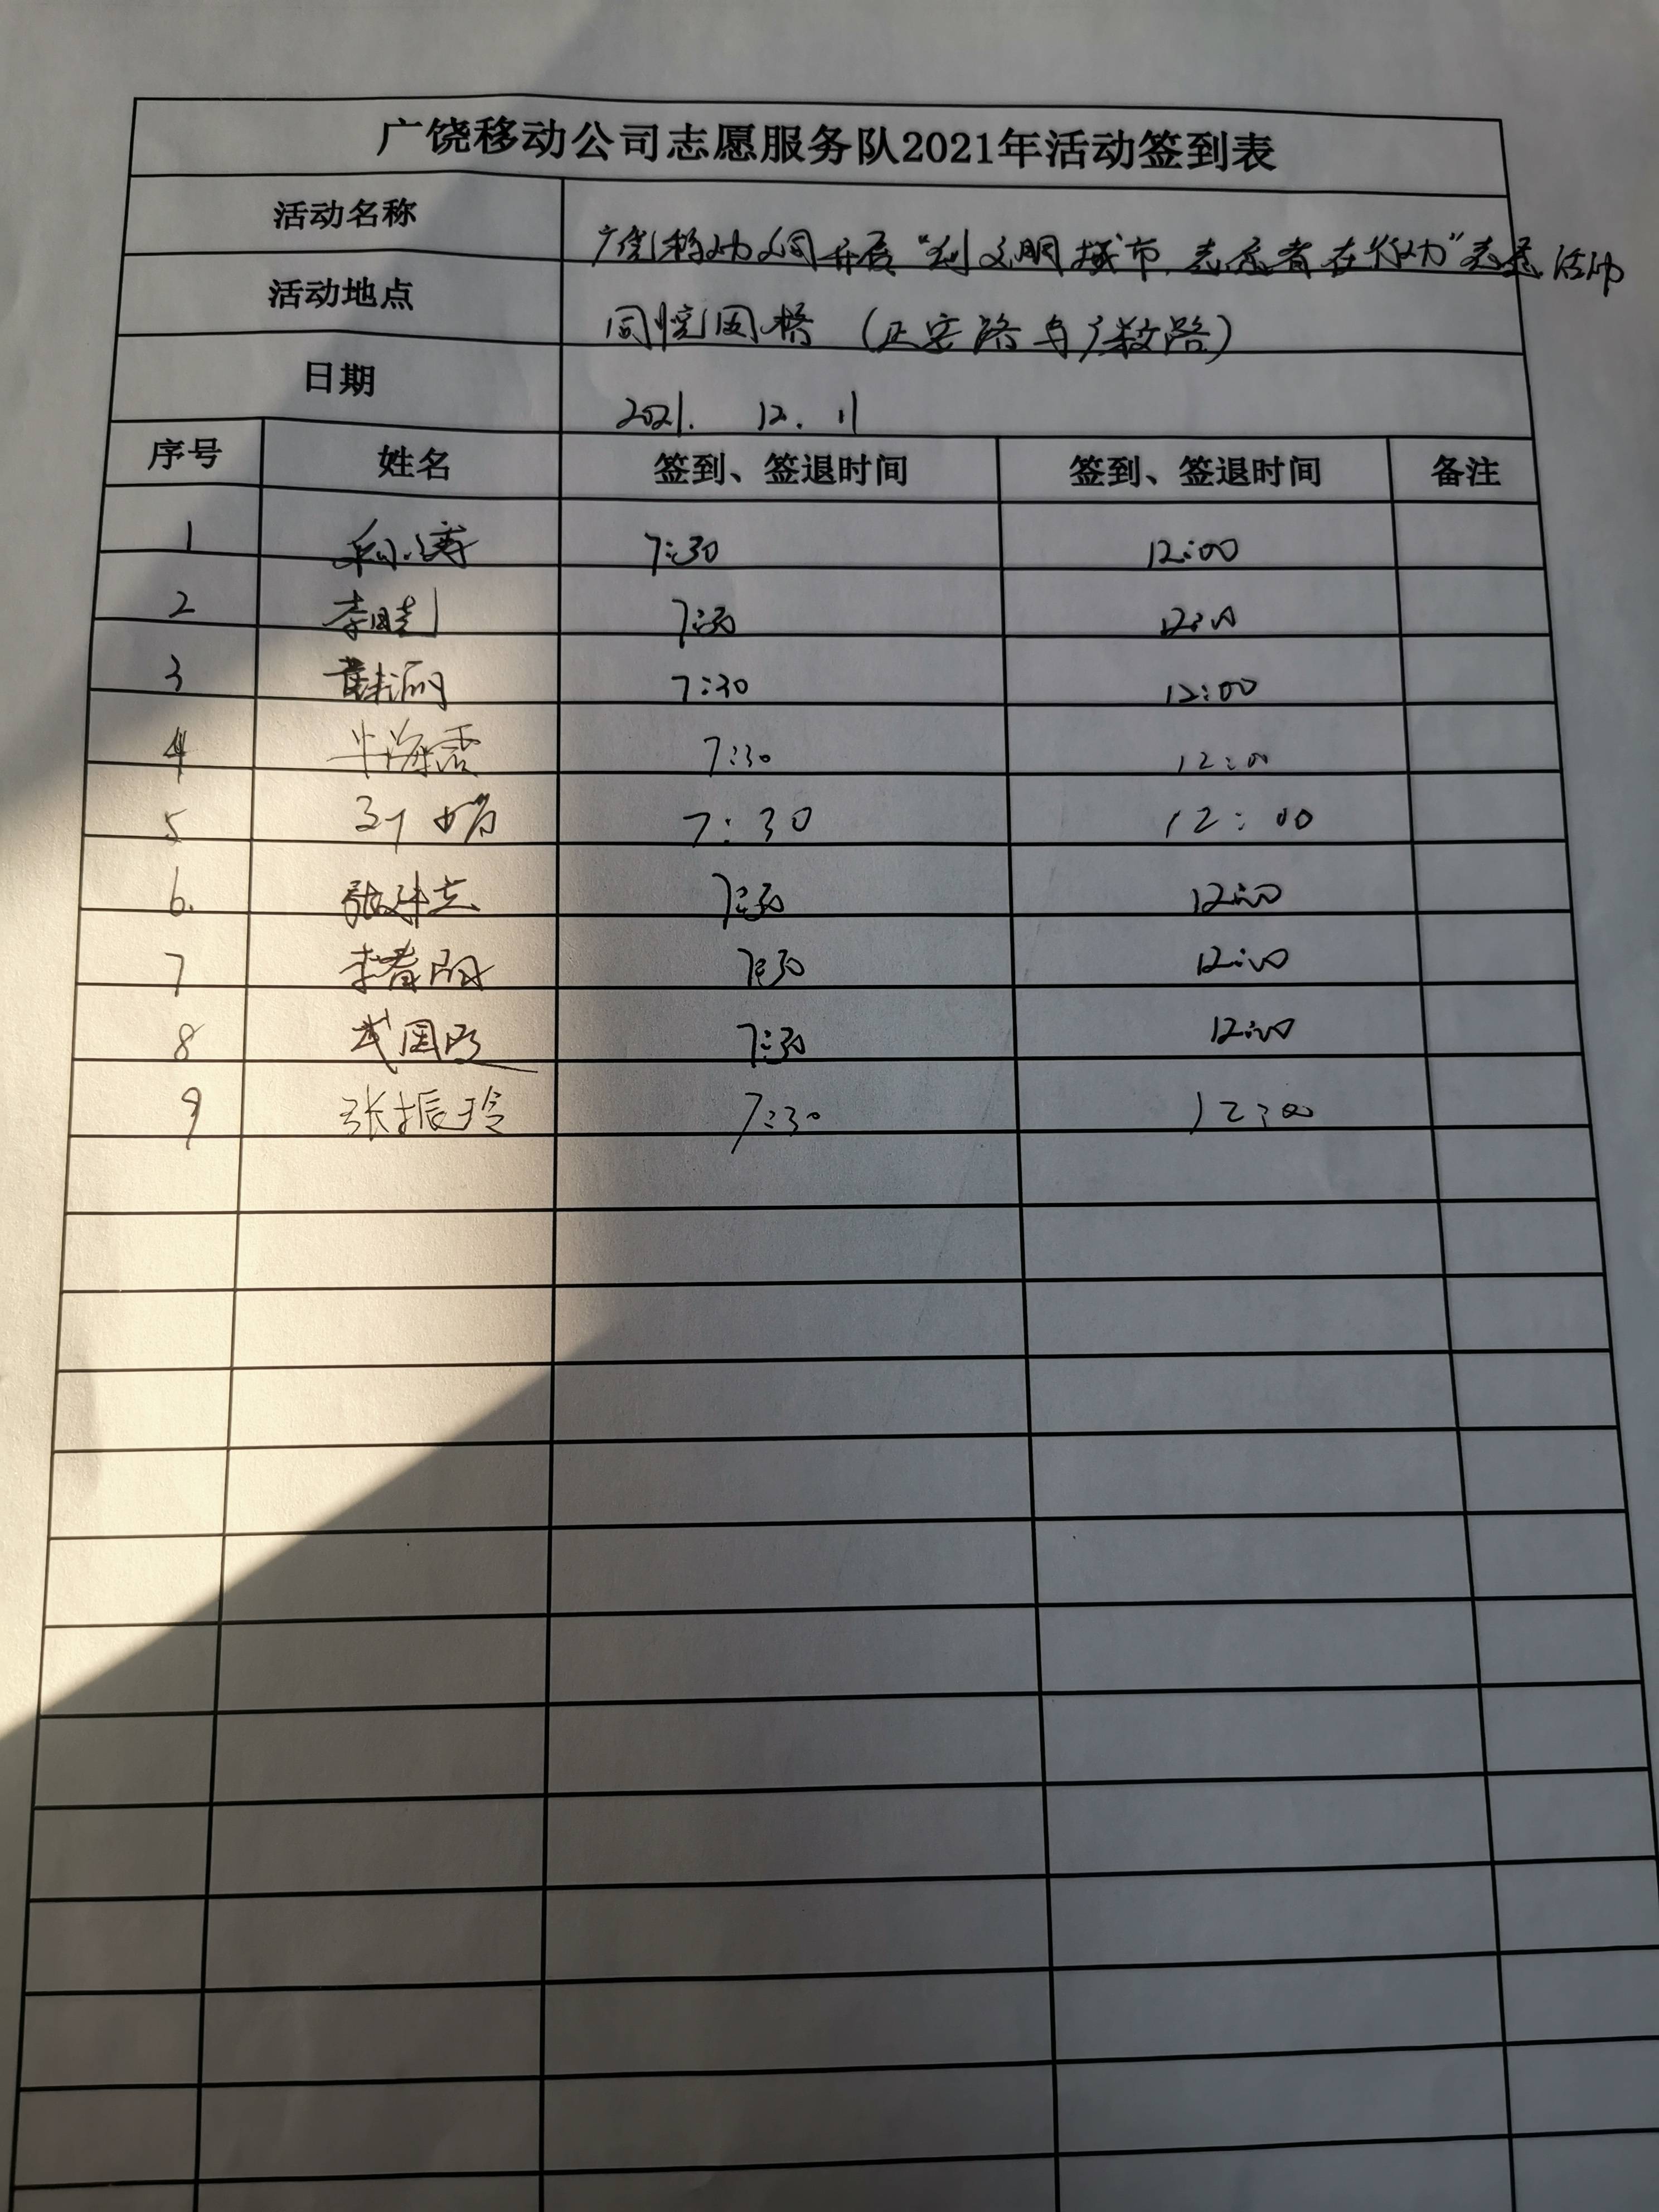 广饶移动公司志愿服务队2021年活动签到表
活动名称 广饶移动公司开展“创文明城市,志愿者在行动”志愿活动
活动地点 (正安路与广颜路)
日期 2021. 12. 11
序号 姓名 签到、签退时间 签到、签退时间 备注
1 7:30 12:00
2 李 7:30 12:00
3 7:30 12:00
4 牛海霞 7:30 12:00
5 7:30 12:00
6. 张 7:30 12:00
7 李春丽 7:30 12:00
8 武国 7:30 12:00
9 张振玲 7:30 12:00